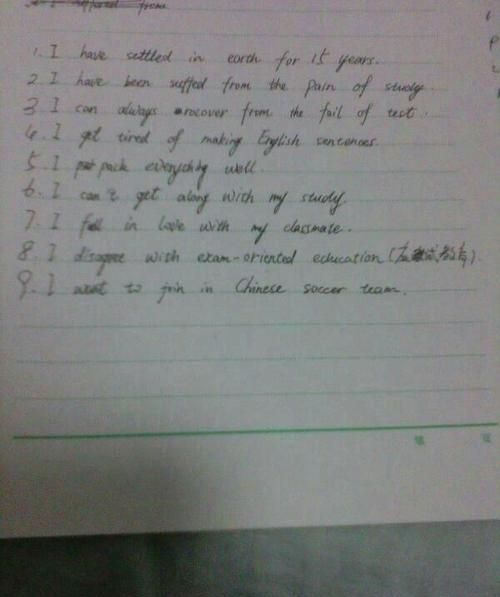 from
1. I have settled in earth for 15 years.
2. I have been suffed from the pain of study.
3. I can always rocover from the fail of test.
4. I get tired of making English sentences.
5. I pack everything well.
6. I can't get along with my study.
7. I fell in love with my classmate.
8. I disagree with exam-oriented education (教育).
9. I want to join in Chinese soccer team.